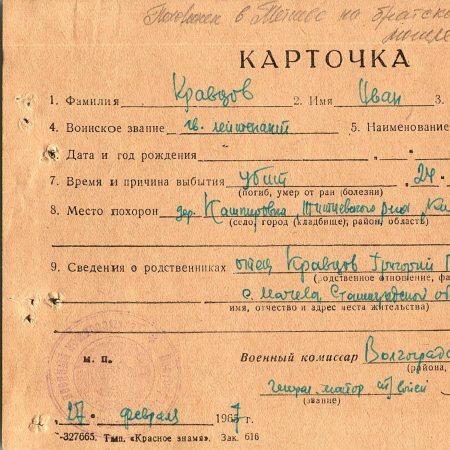 Похоронен в
КАРТОЧКА
1. Фамилия Кравцов 2. Имя Иван 3.
4. Воинское звание гв. лейтенант 5. Наименование
6. Дата и год рождения
7. Время и причина выбытия убит 24
(погиб, умер от ран (болезни)
8. Место похорон дер. Кашировка,
(село, город (кладбище), район, область)
9. Сведения о родственниках отец Кравцов Григорий
(родственное отношение, фа
с. Мачеха, Сталинградской об
имя, отчество и адрес места жительства)
М. П. Военный комиссар Волгоград
(района,
генерал майор
(звание)
27 февраля 1967 г.
-327665. Тип. «Красное знамя». Зак. 616